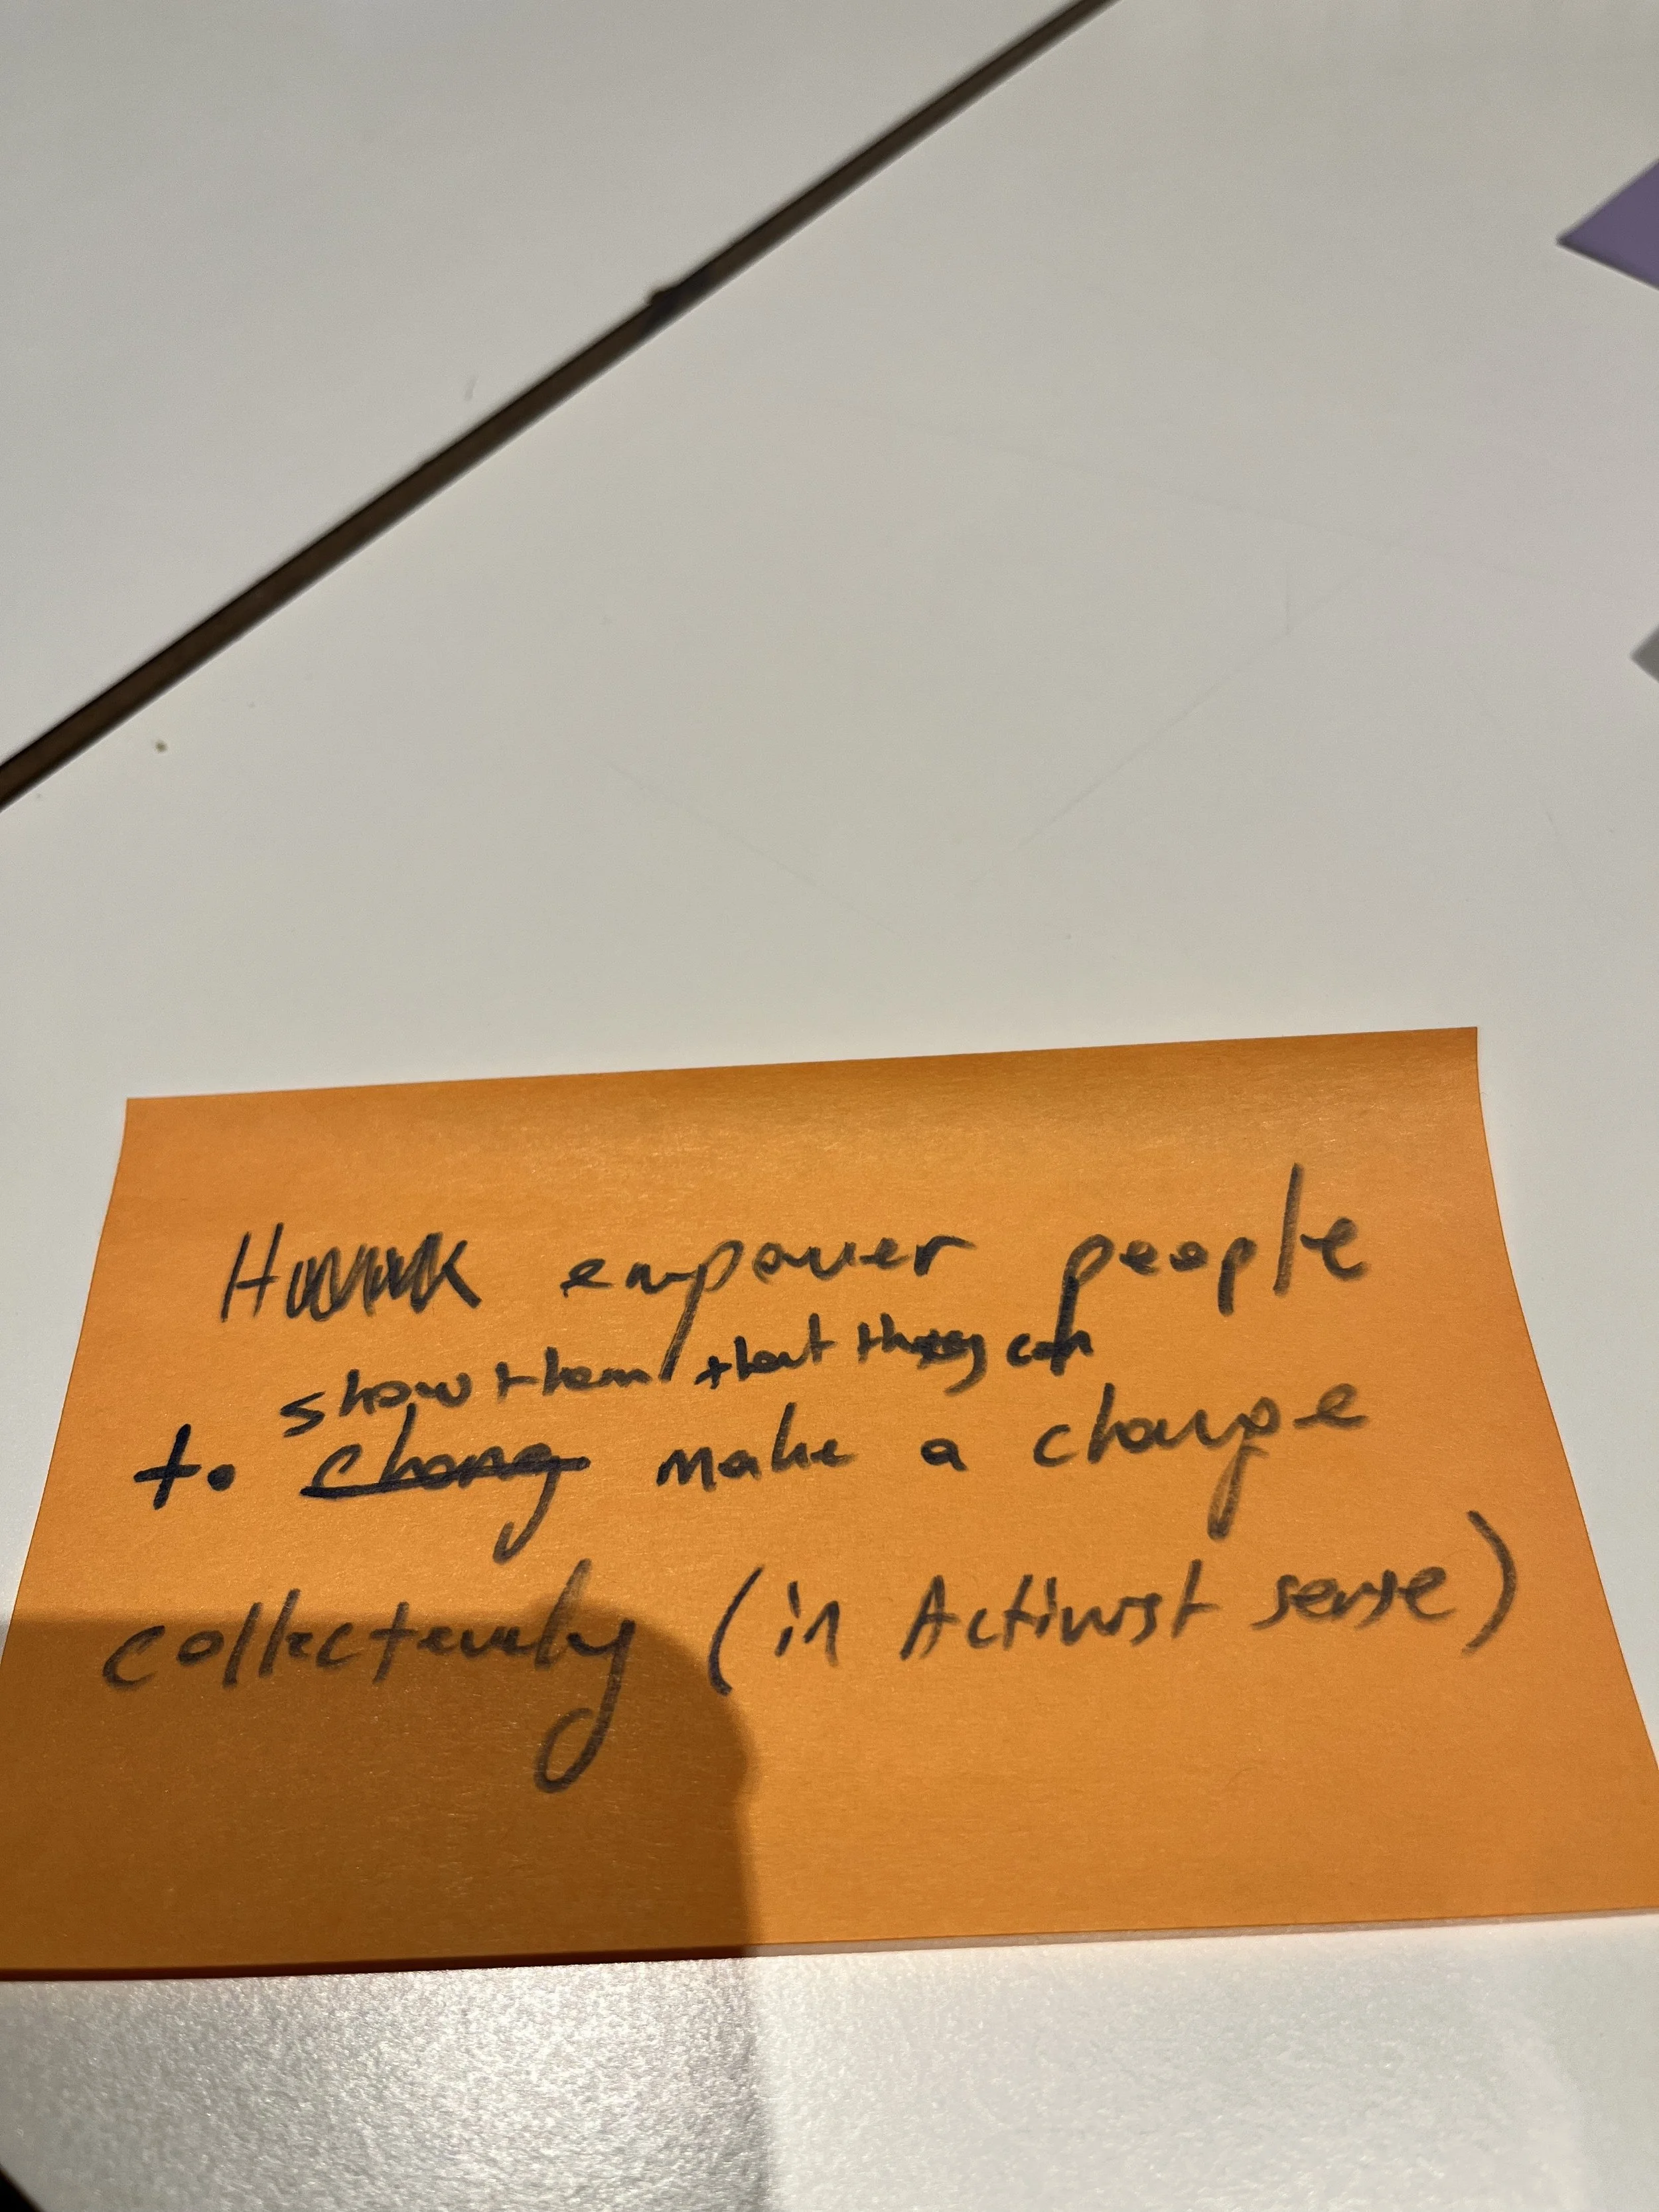 empower people
show them that they can
to chang make a change
collectevely (in Activist sense)